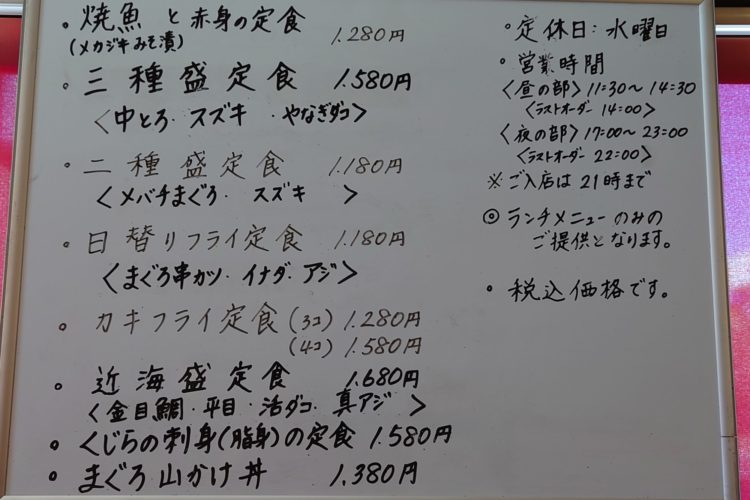 ・焼魚と赤身の定食 1.280円
(メカジキみそ漬)
・三種盛定食 1.580円
〈中とろ・スズキ・やなぎダコ〉
・二種盛定食 1.180円
〈メバチまぐろ・スズキ〉
・日替りフライ定食 1.180円
〈まぐろ串カツ・イナダ・アジ〉
・カキフライ定食(3コ) 1.280円
(4コ) 1.580円
・近海盛定食 1.680円
〈金目鯛・平目・活ダコ・真アジ〉
・くじらの刺身(脂身)の定食 1.580円
・まぐろ山かけ丼 1.380円
・定休日:水曜日
・営業時間
〈昼の部〉11:30〜14:30
〈ラストオーダー 14:00〉
〈夜の部〉17:00〜23:00
〈ラストオーダー 22:00〉
※ご入店は21時まで
◎ランチメニューのみの
ご提供となります。
・税込価格です。